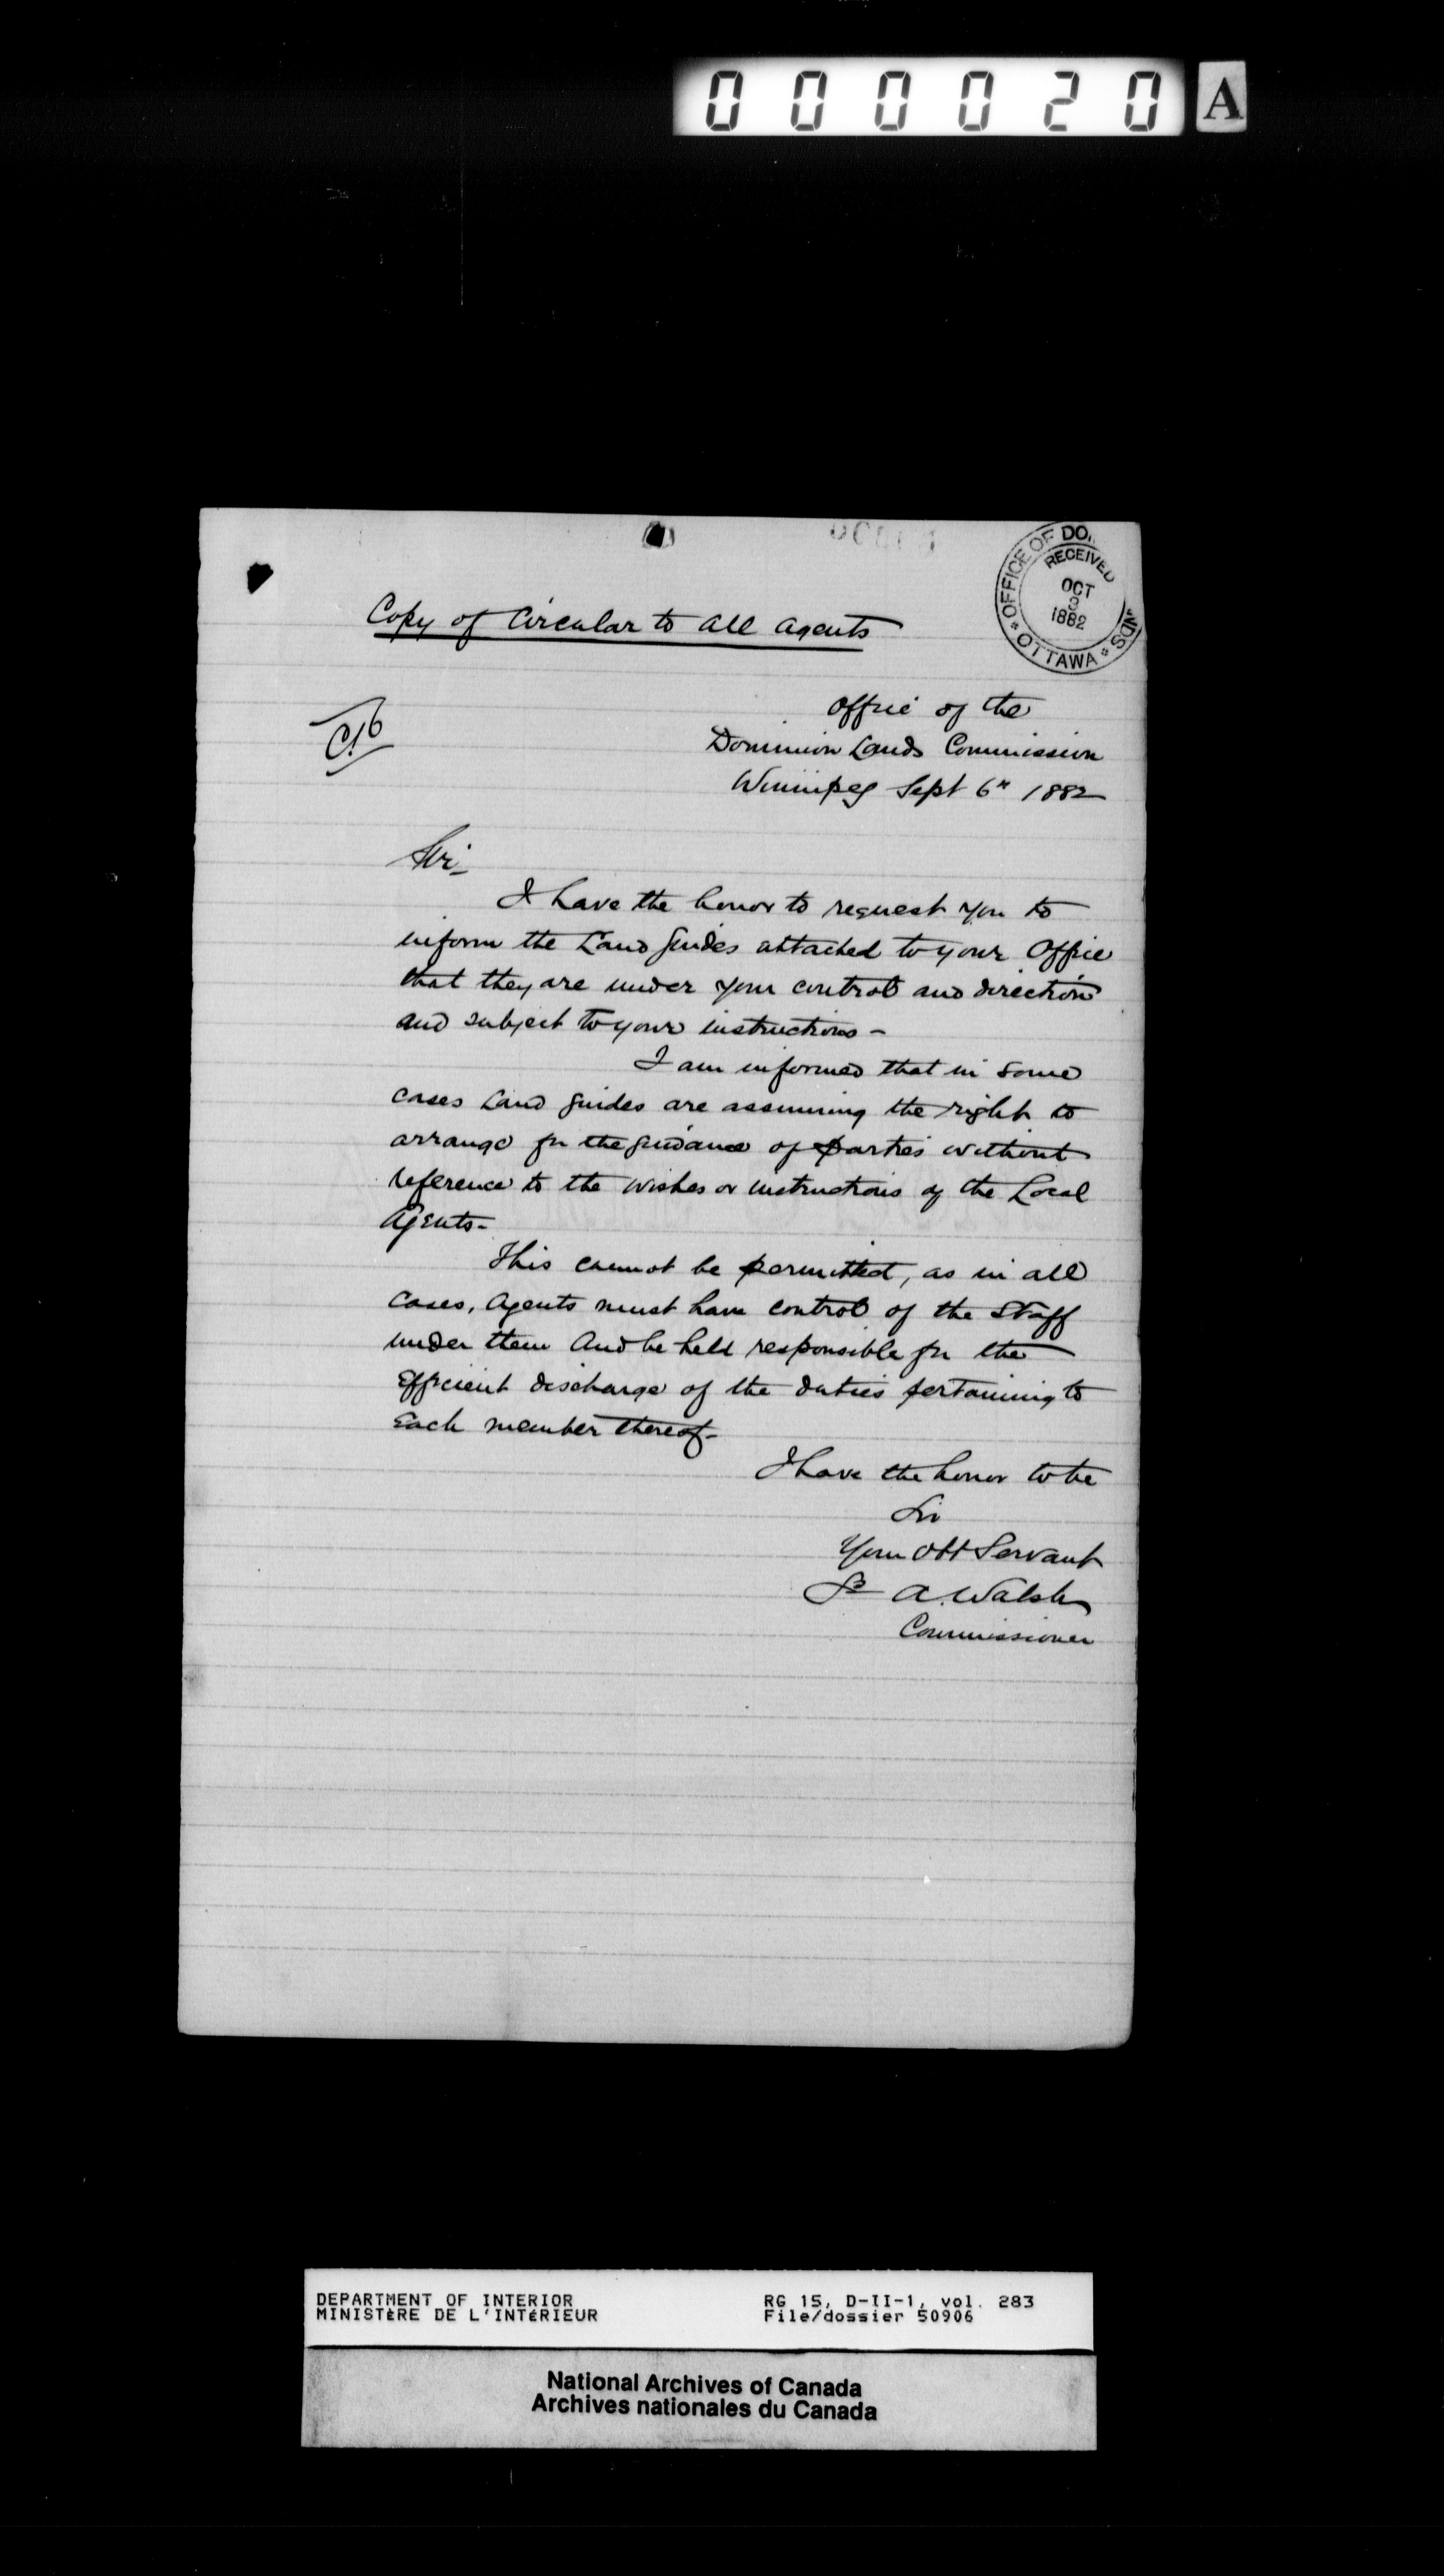 000020 A
OFFICE OF DO
RECEIVED
OCT
3
1882
OTTAWA
Copy of Circular to all agents
Office of the
Dominion Lands Commission
Winnipeg Sept 6th 1882
Sir-
I have the honor to request you to
inform the Land Guides attached to your Office
that they are under your control and direction
and subject to your instructions -
I am informed that in some
cases Land Guides are assuming the right to
arrange for the guidance of parties without
reference to the wishes or instructions of the Local
Agents-
This cannot be permitted, as in all
Cases, Agents must have control of the Staff
under them And be held responsible for the
Efficient discharge of the duties pertaining to
Each member thereof-
I have the honor to be
Sir
Your Obt Servant
A. Walsh
Commissioner
DEPARTMENT OF INTERIOR RG 15, D-II-1, vol. 283
MINISTÈRE DE L'INTÉRIEUR File/dossier 50906
National Archives of Canada
Archives nationales du Canada